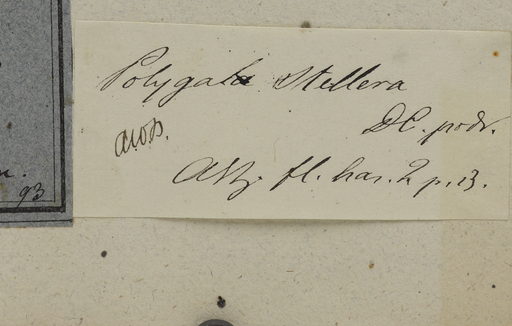 Polygala Stellera
DC. prodr.
Afz. fl. har. 2 p. 13.
n.
93